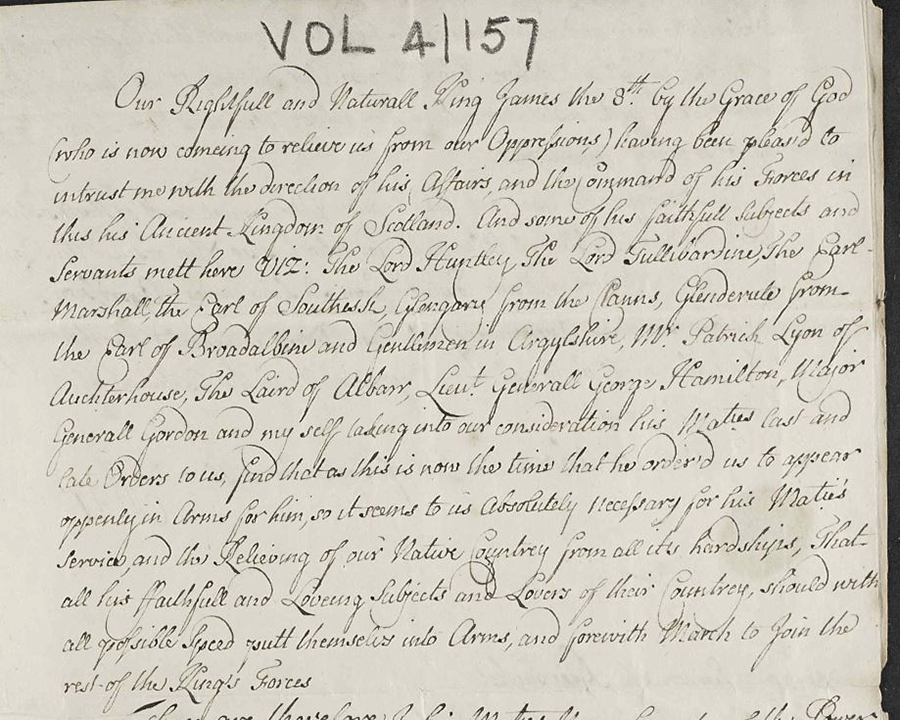 VOL 4/157
Our Rightfull and Naturall King James the 8th. by the Grace of God
(who is now comeing to relieve us from our Oppressions) having been pleas'd to
intrust me with the direction of his Affairs, and the Command of his Forces in
this his Ancient Kingdom of Scotland. And some of his faithfull Subjects and
Servants mett here Viz: The Lord Huntley, The Lord Tullibardine, The Earl
Marshall, the Earl of Southesk, Glengarie from the Clanns, Glenderule from
the Earl of Broadalbine and Gentlemen in Argylshire, Mr. Patrick Lyon of
Auchterhouse, The Laird of Albarr, Lieut. Generall George Hamilton, Major
Generall Gordon and my self taking into our consideration his Maties last and
late Orders to us, find that as this is now the time that he order'd us to appear
oppenly in Arms for him, so it seems to us Absolutely necessary for his Maties
Service, and the Relieving of our Native Countrey from all its hardships, That
all his ffaithfull and Loveing Subjects and Lovers of their Countrey, should with
all possible Speed putt themselvs into Arms, and forewith March to Join the
rest of the King's Forces